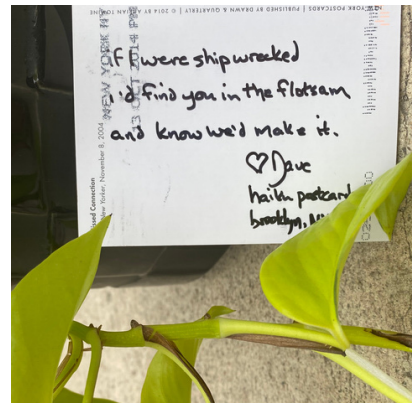 YORK POSTCARDS | PUBLISHED BY DRAWN & QUARTERLY | © 2014 BY ADRIAN TOMINE
NEW YORK NY
13 OCT 2014 PM
If I were shipwrecked
I'd find you in the flotsam
and know we'd make it.
♡ Dave
haiku postcard
brooklyn, NY
issed Connection
New Yorker, November 8, 2004